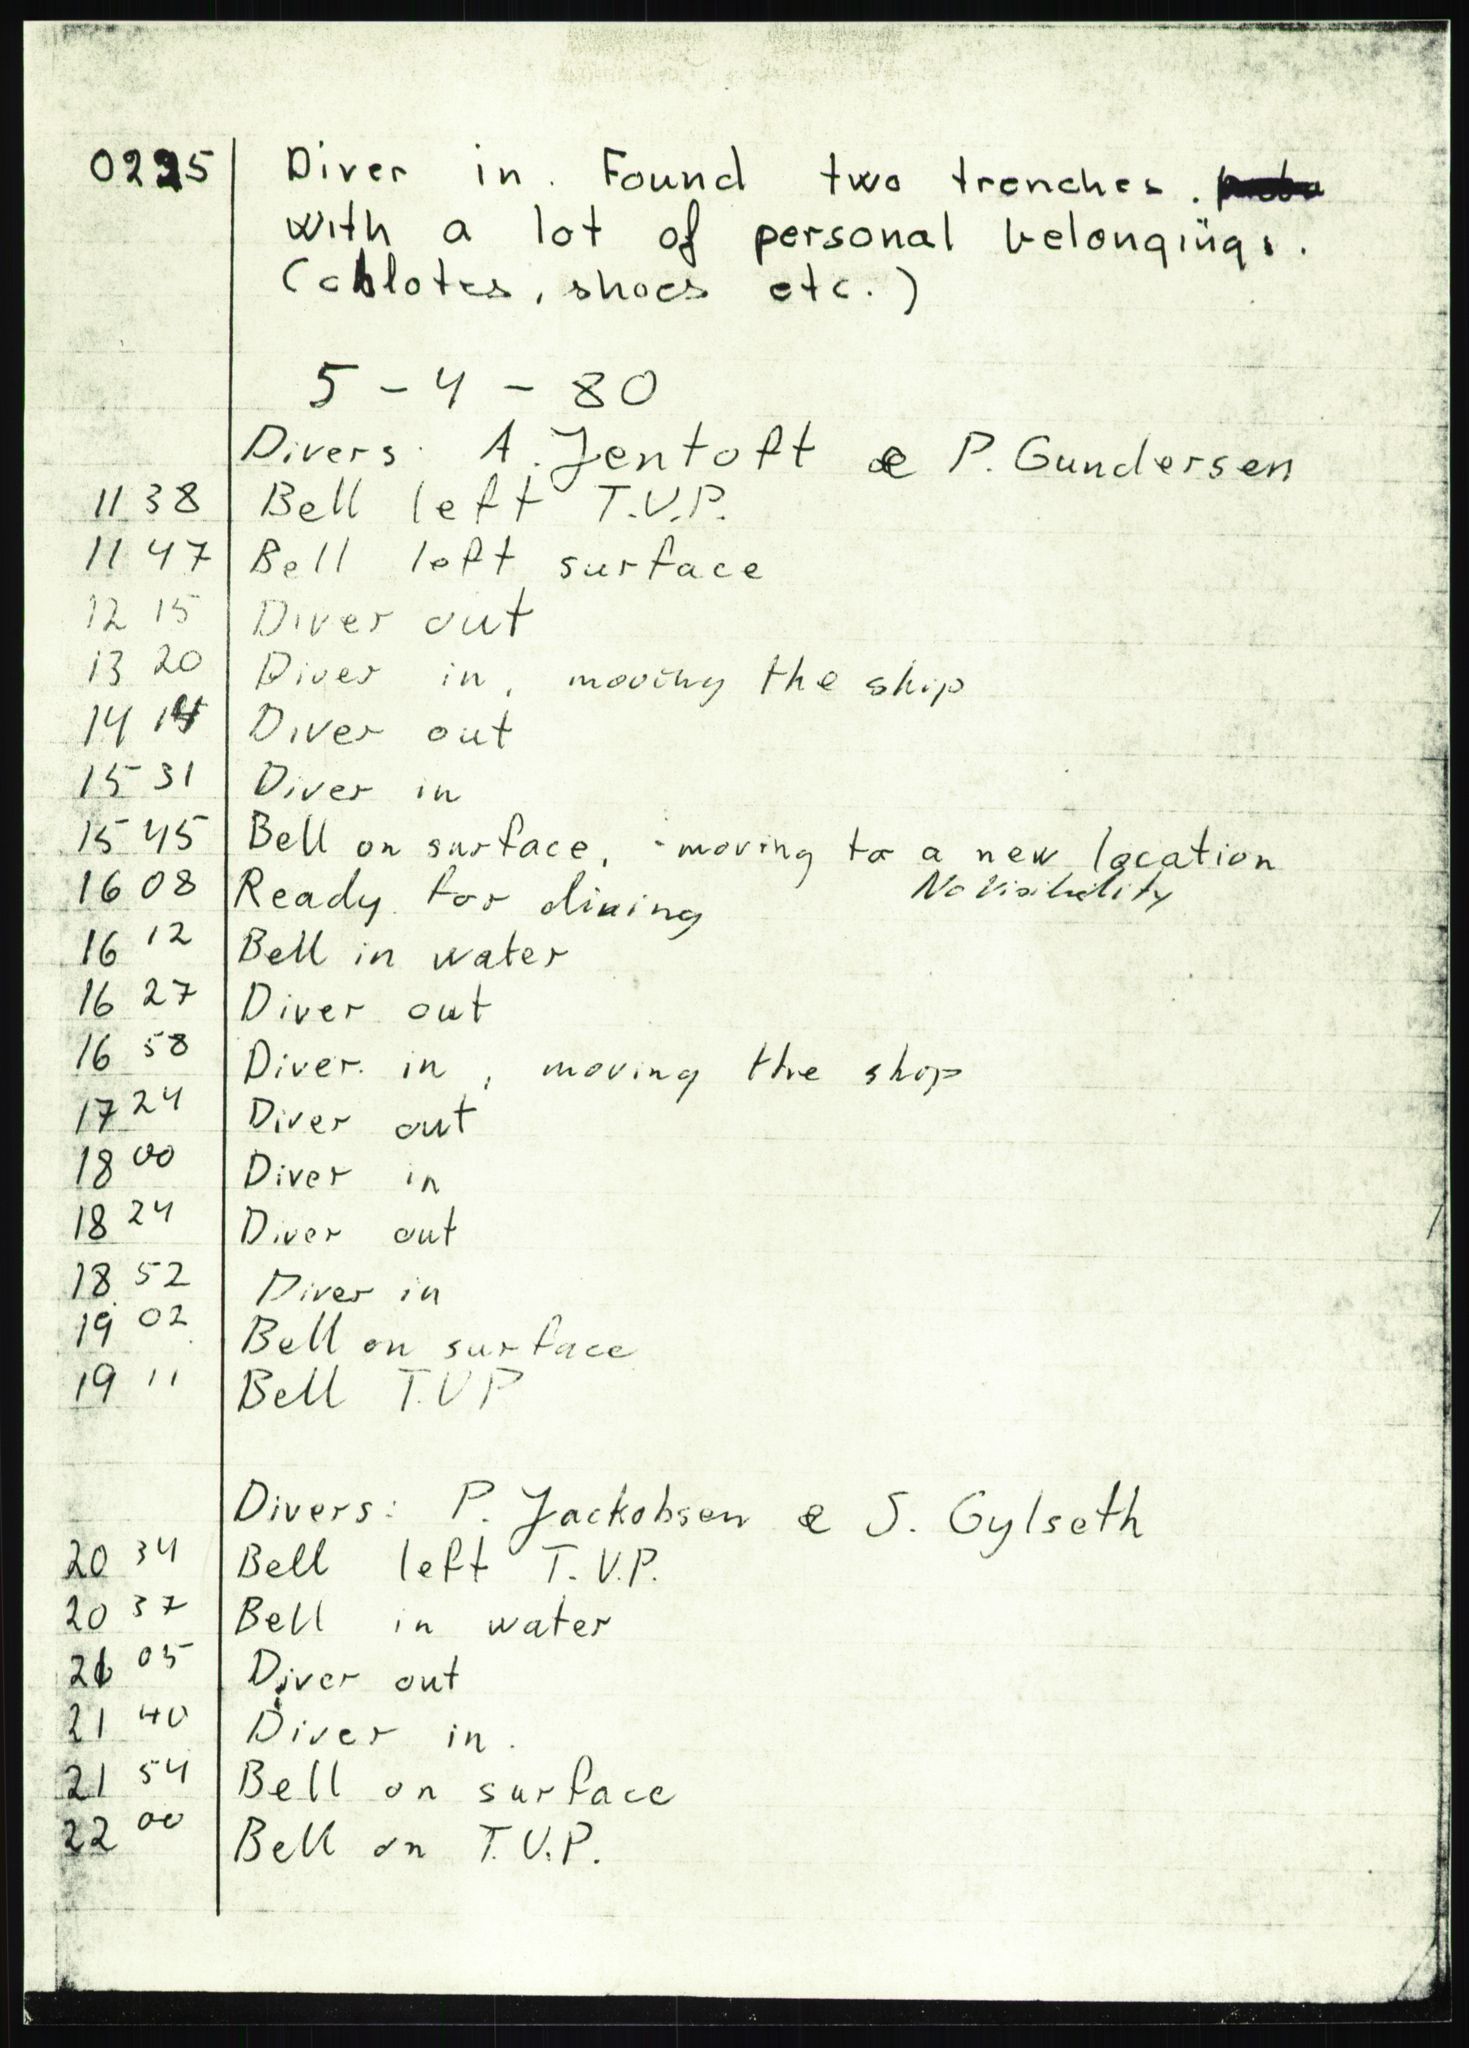 0225 Diver in. Found two trenches.
with a lot of personal belongings.
(chlotes, shoes etc.)
5-4-80
Divers: A. Jentoft & P. Gundersen
11 38 Bell left T.V.P.
11 47 Bell left surface
12 15 Diver out
13 20 Diver in, moving the ship
14 14 Diver out
15 31 Diver in
15 45 Bell on surface, moving to a new location
16 08 Ready for diving No visibility
16 12 Bell in water
16 27 Diver out
16 58 Diver in, moving the ship
17 24 Diver out
18 00 Diver in
18 24 Diver out
18 52 Diver in
19 02 Bell on surface
19 11 Bell T.V.P
Divers: P. Jackobsen & S. Gylseth
20 34 Bell left T.V.P.
20 37 Bell in water
21 05 Diver out
21 40 Diver in.
21 54 Bell on surface
22 00 Bell on T.V.P.